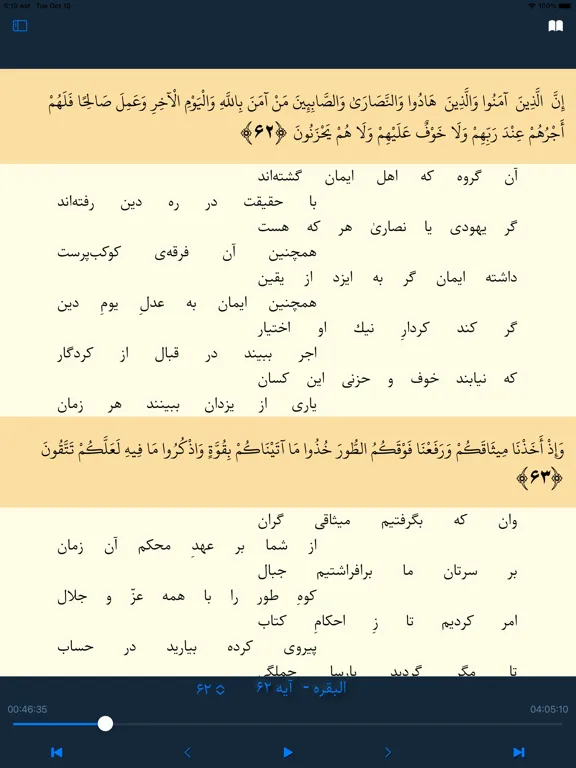 5:19 AM Tue Oct 10 100%
إِنَّ الَّذِينَ آمَنُوا وَالَّذِينَ هَادُوا وَالنَّصَارَىٰ وَالصَّابِئِينَ مَنْ آمَنَ بِاللَّهِ وَالْيَوْمِ الْآخِرِ وَعَمِلَ صَالِحًا فَلَهُمْ
أَجْرُهُمْ عِنْدَ رَبِّهِمْ وَلَا خَوْفٌ عَلَيْهِمْ وَلَا هُمْ يَحْزَنُونَ ﴿۶۲﴾
آن گروه که اهل ایمان گشته‌اند
با حقیقت در ره دین رفته‌اند
گر یهودی یا نصاریٰ هر که هست
همچنین آن فرقه‌ی کوکب‌پرست
داشته ایمان گر به ایزد از یقین
همچنین ایمان به عدلِ یومِ دین
گر کند کردارِ نیك او اختیار
اجر ببیند در قبال از کردگار
که نیابند خوف و حزنی این کسان
یاری از یزدان ببینند هر زمان
وَإِذْ أَخَذْنَا مِيثَاقَكُمْ وَرَفَعْنَا فَوْقَكُمُ الطُّورَ خُذُوا مَا آتَيْنَاكُمْ بِقُوَّةٍ وَاذْكُرُوا مَا فِيهِ لَعَلَّكُمْ تَتَّقُونَ
﴿۶۳﴾
وان که بگرفتیم میثاقی گران
از شما بر عهدِ محکم آن زمان
بر سرتان ما برافراشتیم جبال
کوهِ طور را با همه عزّ و جلال
امر کردیم تا زِ احکامِ کتاب
پیروی کرده بیارید در حساب
تا مگر گردید پارسا جملگی
البقره - آیه ۶۲ ۶۲
00:46:35 04:05:10